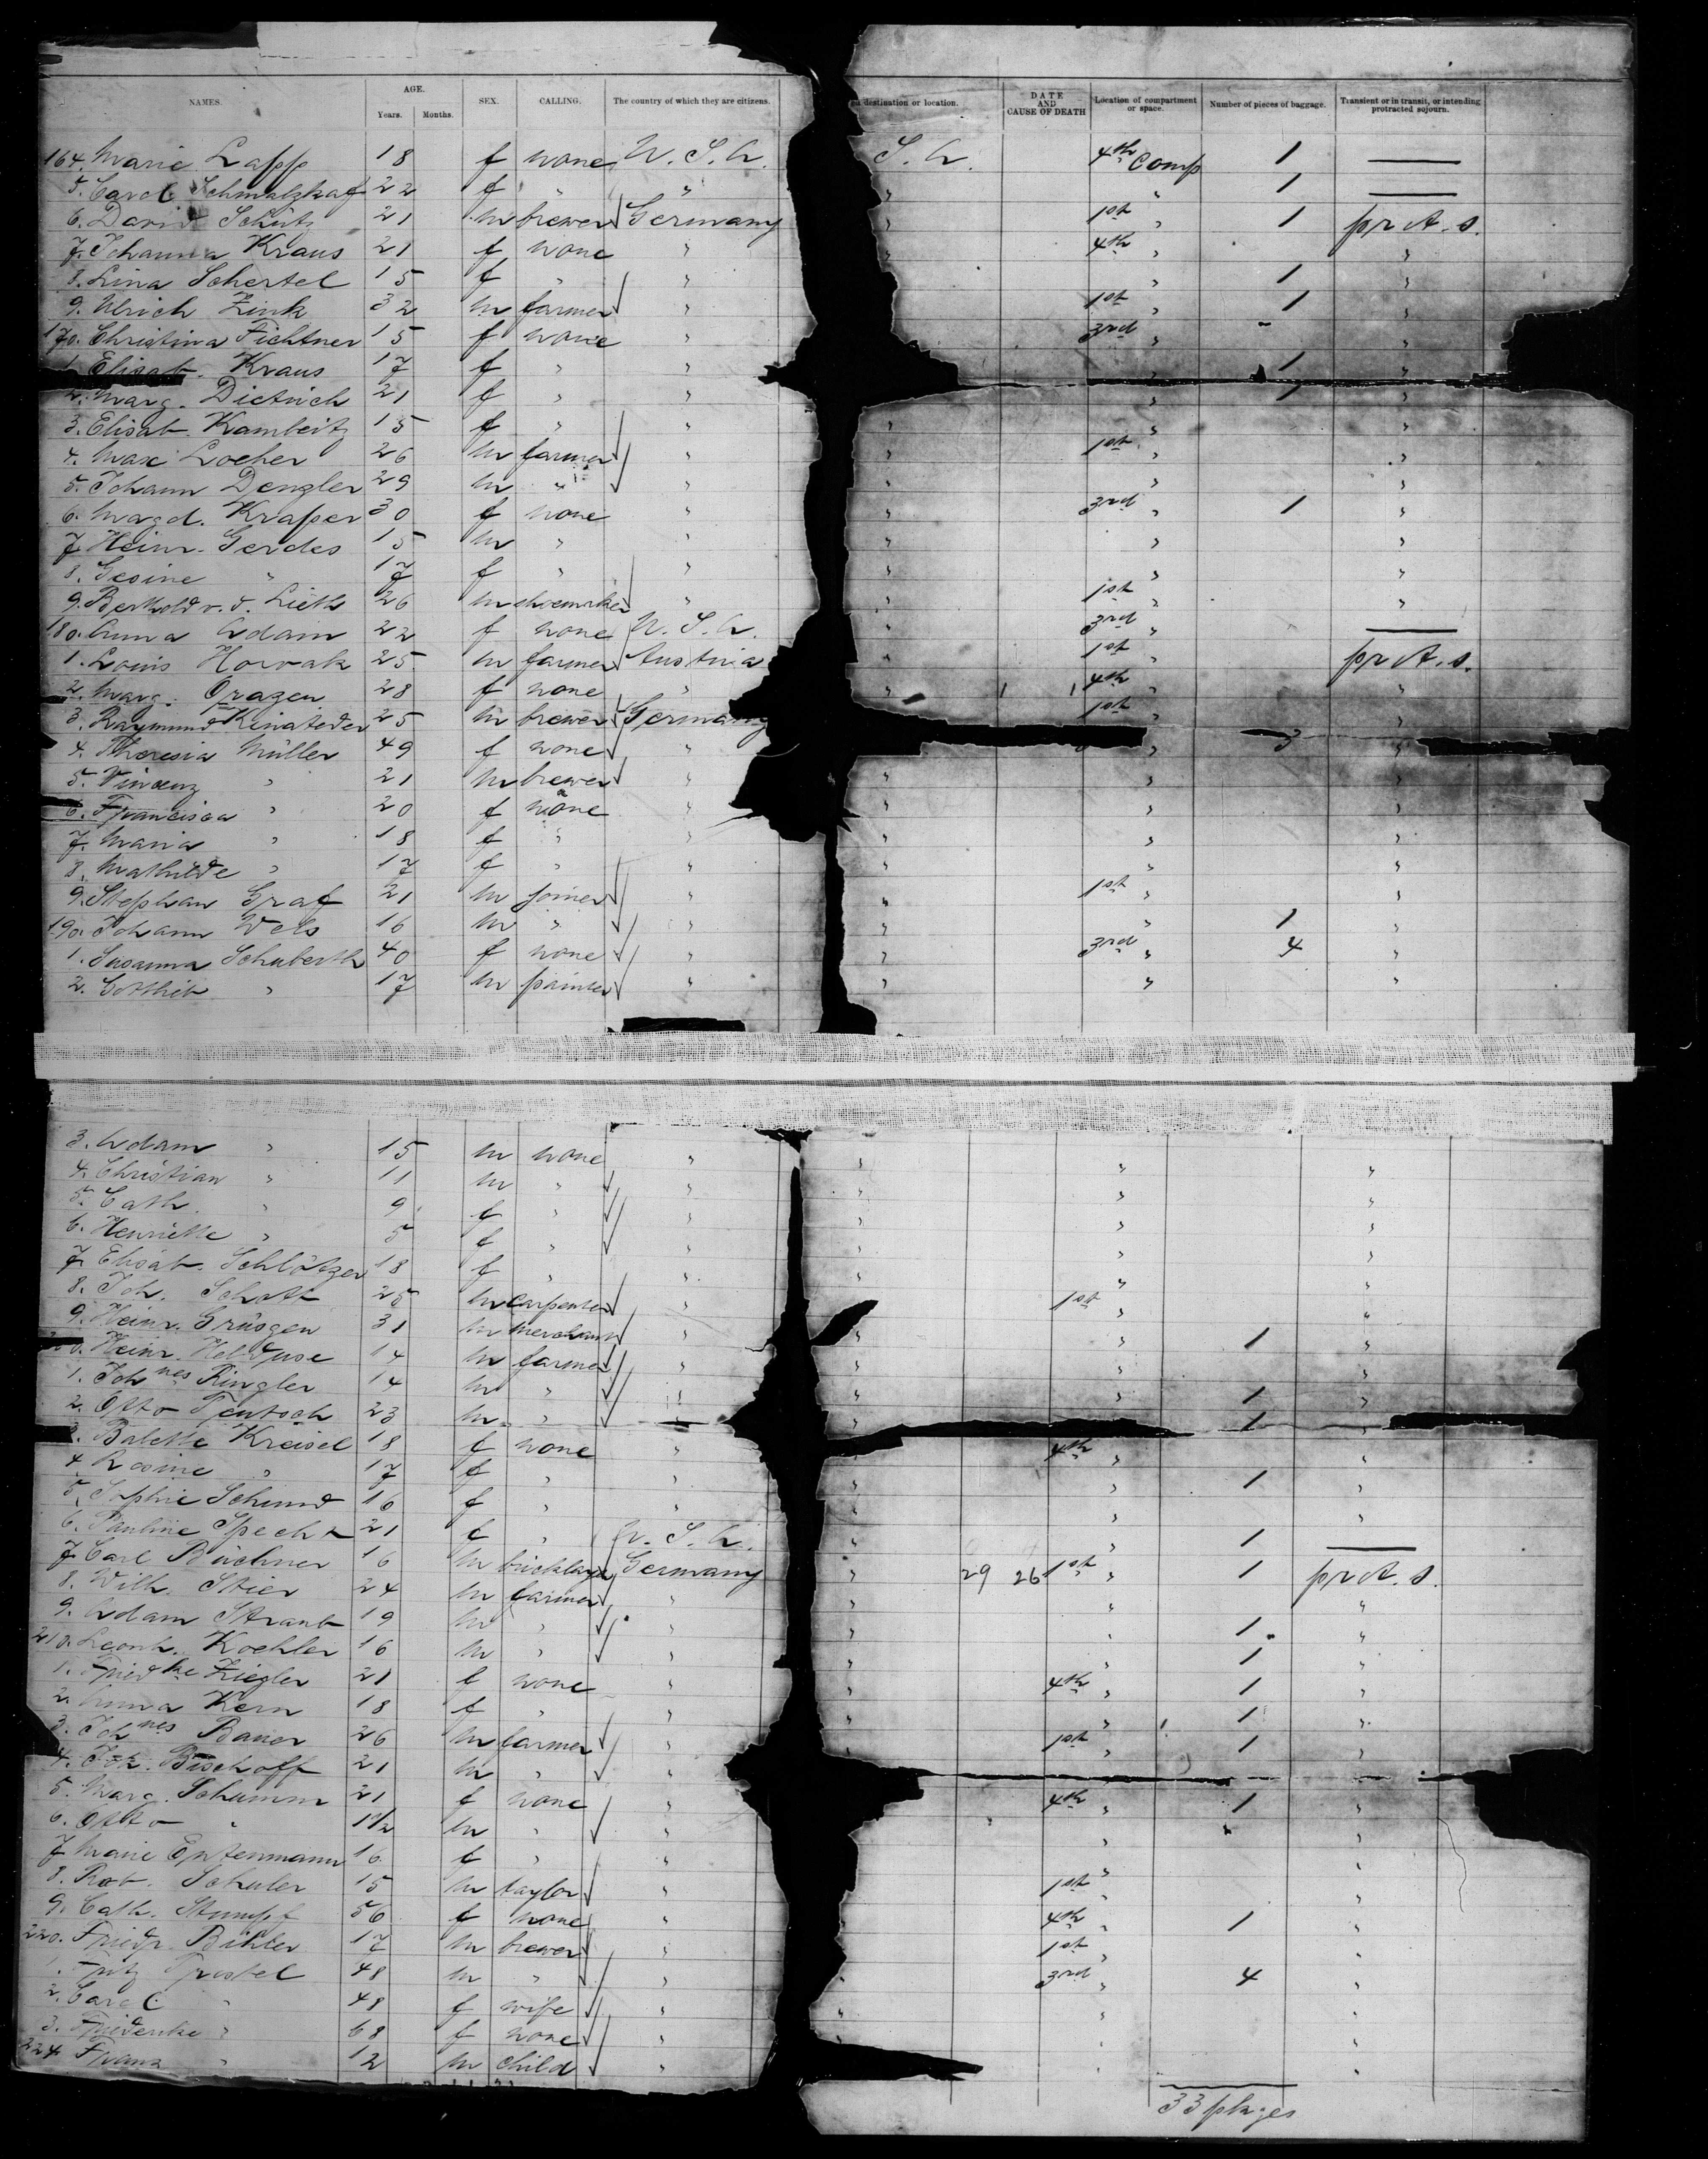 NAMES. AGE. Years. Months. SEX. CALLING. The country of which they are citizens. destination or location. DATE AND CAUSE OF DEATH Location of compartment or space. Number of pieces of baggage. Transient or in transit, or intending protracted sojourn.
164. Marie Lapp 18 f none U. S. A. S. A. 4th Comp 1 —
5. Carol. Schmalzhaf 22 f " " " " 1 —
6. David Schütz 21 m brewer Germany " 1st " 1 pr A. s.
7. Johanna Kraus 21 f none " 4th " "
8. Lina Schertel 15 f " " " 1 "
9. Ulrich Zink 32 m farmer " 1st " 1 "
170. Christina Fichtner 15 f none " 3rd " "
1. Elisab. Kraus 17 f " " " 1 "
2. Marg. Dietrich 21 f " " " 1 "
3. Elisab. Kambeitz 15 f " " " " "
4. Max Locher 26 m farmer " " 1st " "
5. Johann Dengler 29 m " " " " "
6. Magd. Kraper 30 f none " " 3rd " 1 "
7. Heinr. Gerdes 15 m " " " " "
8. Gesine " 17 f " " " " "
9. Berthold v. d. Lieth 26 m shoemaker " " 1st " "
180. Anna Adam 22 f none U. S. A. " 3rd " —
1. Louis Horvak 25 m farmer Austria " 1st " pr A. s.
2. Marg. Orazen 28 f none " " 4th " "
3. Raymund Kinateder 25 m brewer Germany 1st " "
4. Theresia Müller 49 f none " " 3 "
5. Vincenz " 21 m brewer " " " "
6. Francisca " 20 f none " " " "
7. Maria " 18 f " " " " "
8. Mathilde " 17 f " " " " "
9. Stephan Graf 21 m joiner " " 1st " "
190. Johann Wels 16 m " " " " 1 "
1. Susanna Schuberth 40 f none " " 3rd " 4 "
2. Gottlieb " 17 m painter " " " "
3. Adam " 15 m none " " " "
4. Christian " 11 m " " " " "
5. Cath. " 9 f " " " " "
6. Henriette " 5 f " " " " "
7. Elisab. Schlötzer 18 f " " " " "
8. Joh. Schott 25 m carpenter " 1st " "
9. Heinr. Grüsgen 31 m merchant " " 1 "
Heinr. 14 m farmer " " " "
1. Johnes Ringler 14 m " " " " 1 "
2. Otto 23 m " " " 1 "
3. Babette Kreisel 18 f none " 4th " "
4. Rosine " 17 f " " " " 1 "
5. Sophie Schmid 16 f " " " " "
6. Pauline Specht 21 f " U. S. A. " " 1 —
7. Carl Büchner 16 m bricklayer Germany " 29 26 1st " 1 pr A. s.
8. Wilh. Stier 24 m farmer " " " "
9. Adam Straub 19 m " " " " 1 "
210. Leonh. Koehler 16 m " " " " 1 "
1. Friedke Ziegler 21 f none " " 4th " 1 "
2. Anna Kern 18 f " " " " 1 "
3. Johnes Bauer 26 m farmer " " 1st " 1 "
4. Joh. Bischoff 21 m " "
5. Marg. Schumm 21 f none " 4th " 1 "
6. Otto " 1 1/2 m " " " "
7. Marie Entenmann 16 f " " " "
8. Rob. Schuler 15 m taylor " 1st " "
9. Cath. Stumpf 56 f none " 4th " 1 "
220. Friedr. Bihler 17 m brewer " 1st " "
1. Fritz 48 m " " " 3rd " 4 "
2. Carol. " 48 f wife " " " "
3. Friederike " 68 f none " " " "
224 Franz " 12 m child " " "
33 pkages